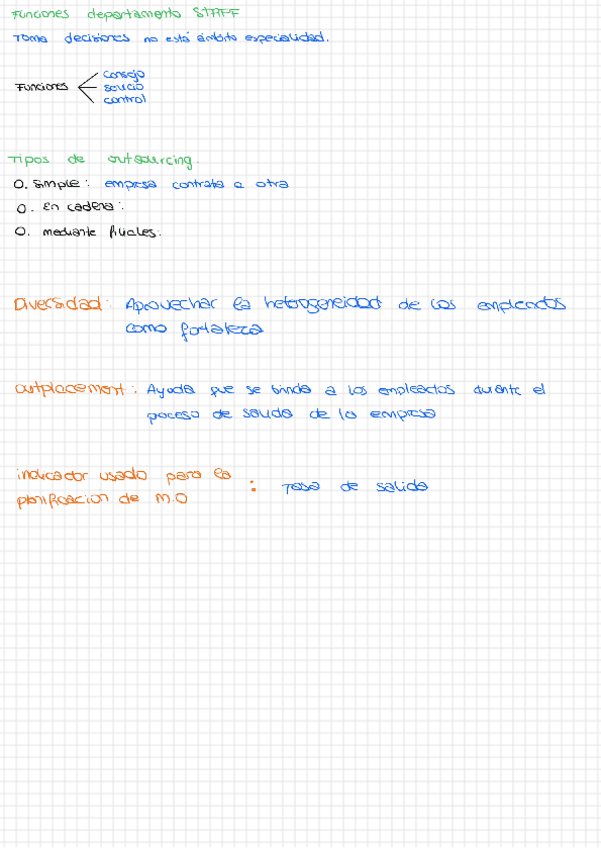 Funciones departamento STAFF
Toma decisiones no está ámbito especialidad.
Funciones
consejo
servicio
control
Tipos de outsourcing.
O. simple: empresa contrata a otra
O. En cadena:
O. mediante filiales:
Diversidad: Aprovechar la heterogeneidad de los empleados
como fortaleza
outplacement: Ayuda que se brinda a los empleados durante el
proceso de salida de la empresa
indicador usado para la
planificación de M.O : Tasa de salida